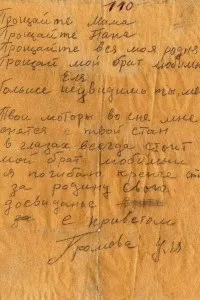 110
Прощайте Мама
Прощайте Папа
Прощайте вся моя родня
Прощай мой брат любимый
Еля
Больше неувидишь ты, ме
Твои моторы во сне мне
Твой стан
в глазах всегда стоит
мой брат любимый
я погибаю крепче ст
за родину свою
досвиданье
с приветом
Громова Уля